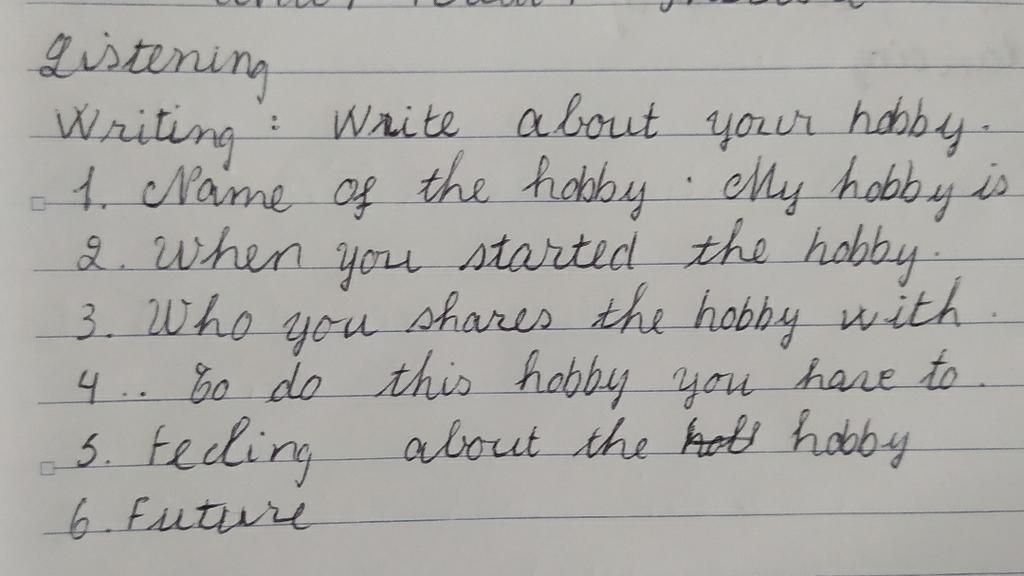 Listening
Writing : Write about your hobby.
1. Name of the hobby . My hobby is
2. When you started the hobby.
3. Who you shares the hobby with.
4.. To do this hobby you have to.
5. Feeling about the hobby
6. Future